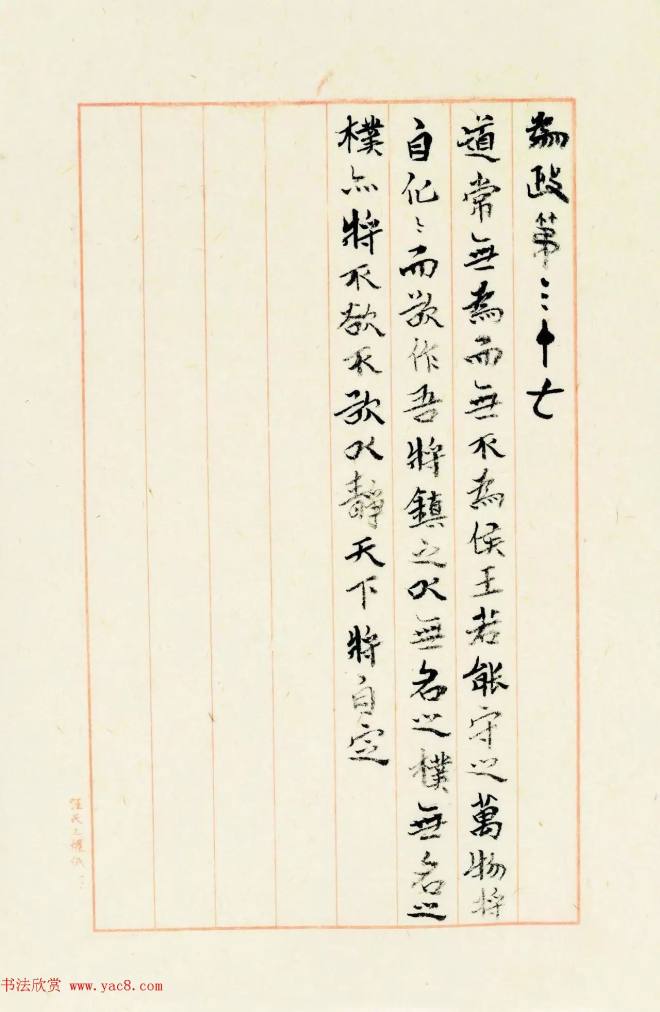 為政第三十七
道常無為而無不為侯王若能守之萬物將
自化〻而欲作吾將鎮之以無名之樸無名之
樸亦將不欲不欲以靜天下將自定
书法欣赏 www.yac8.com